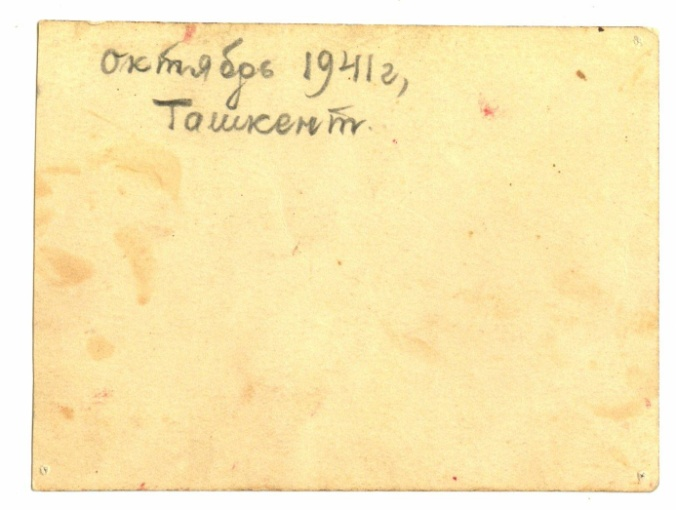 октябрь 1941г,
Ташкент.